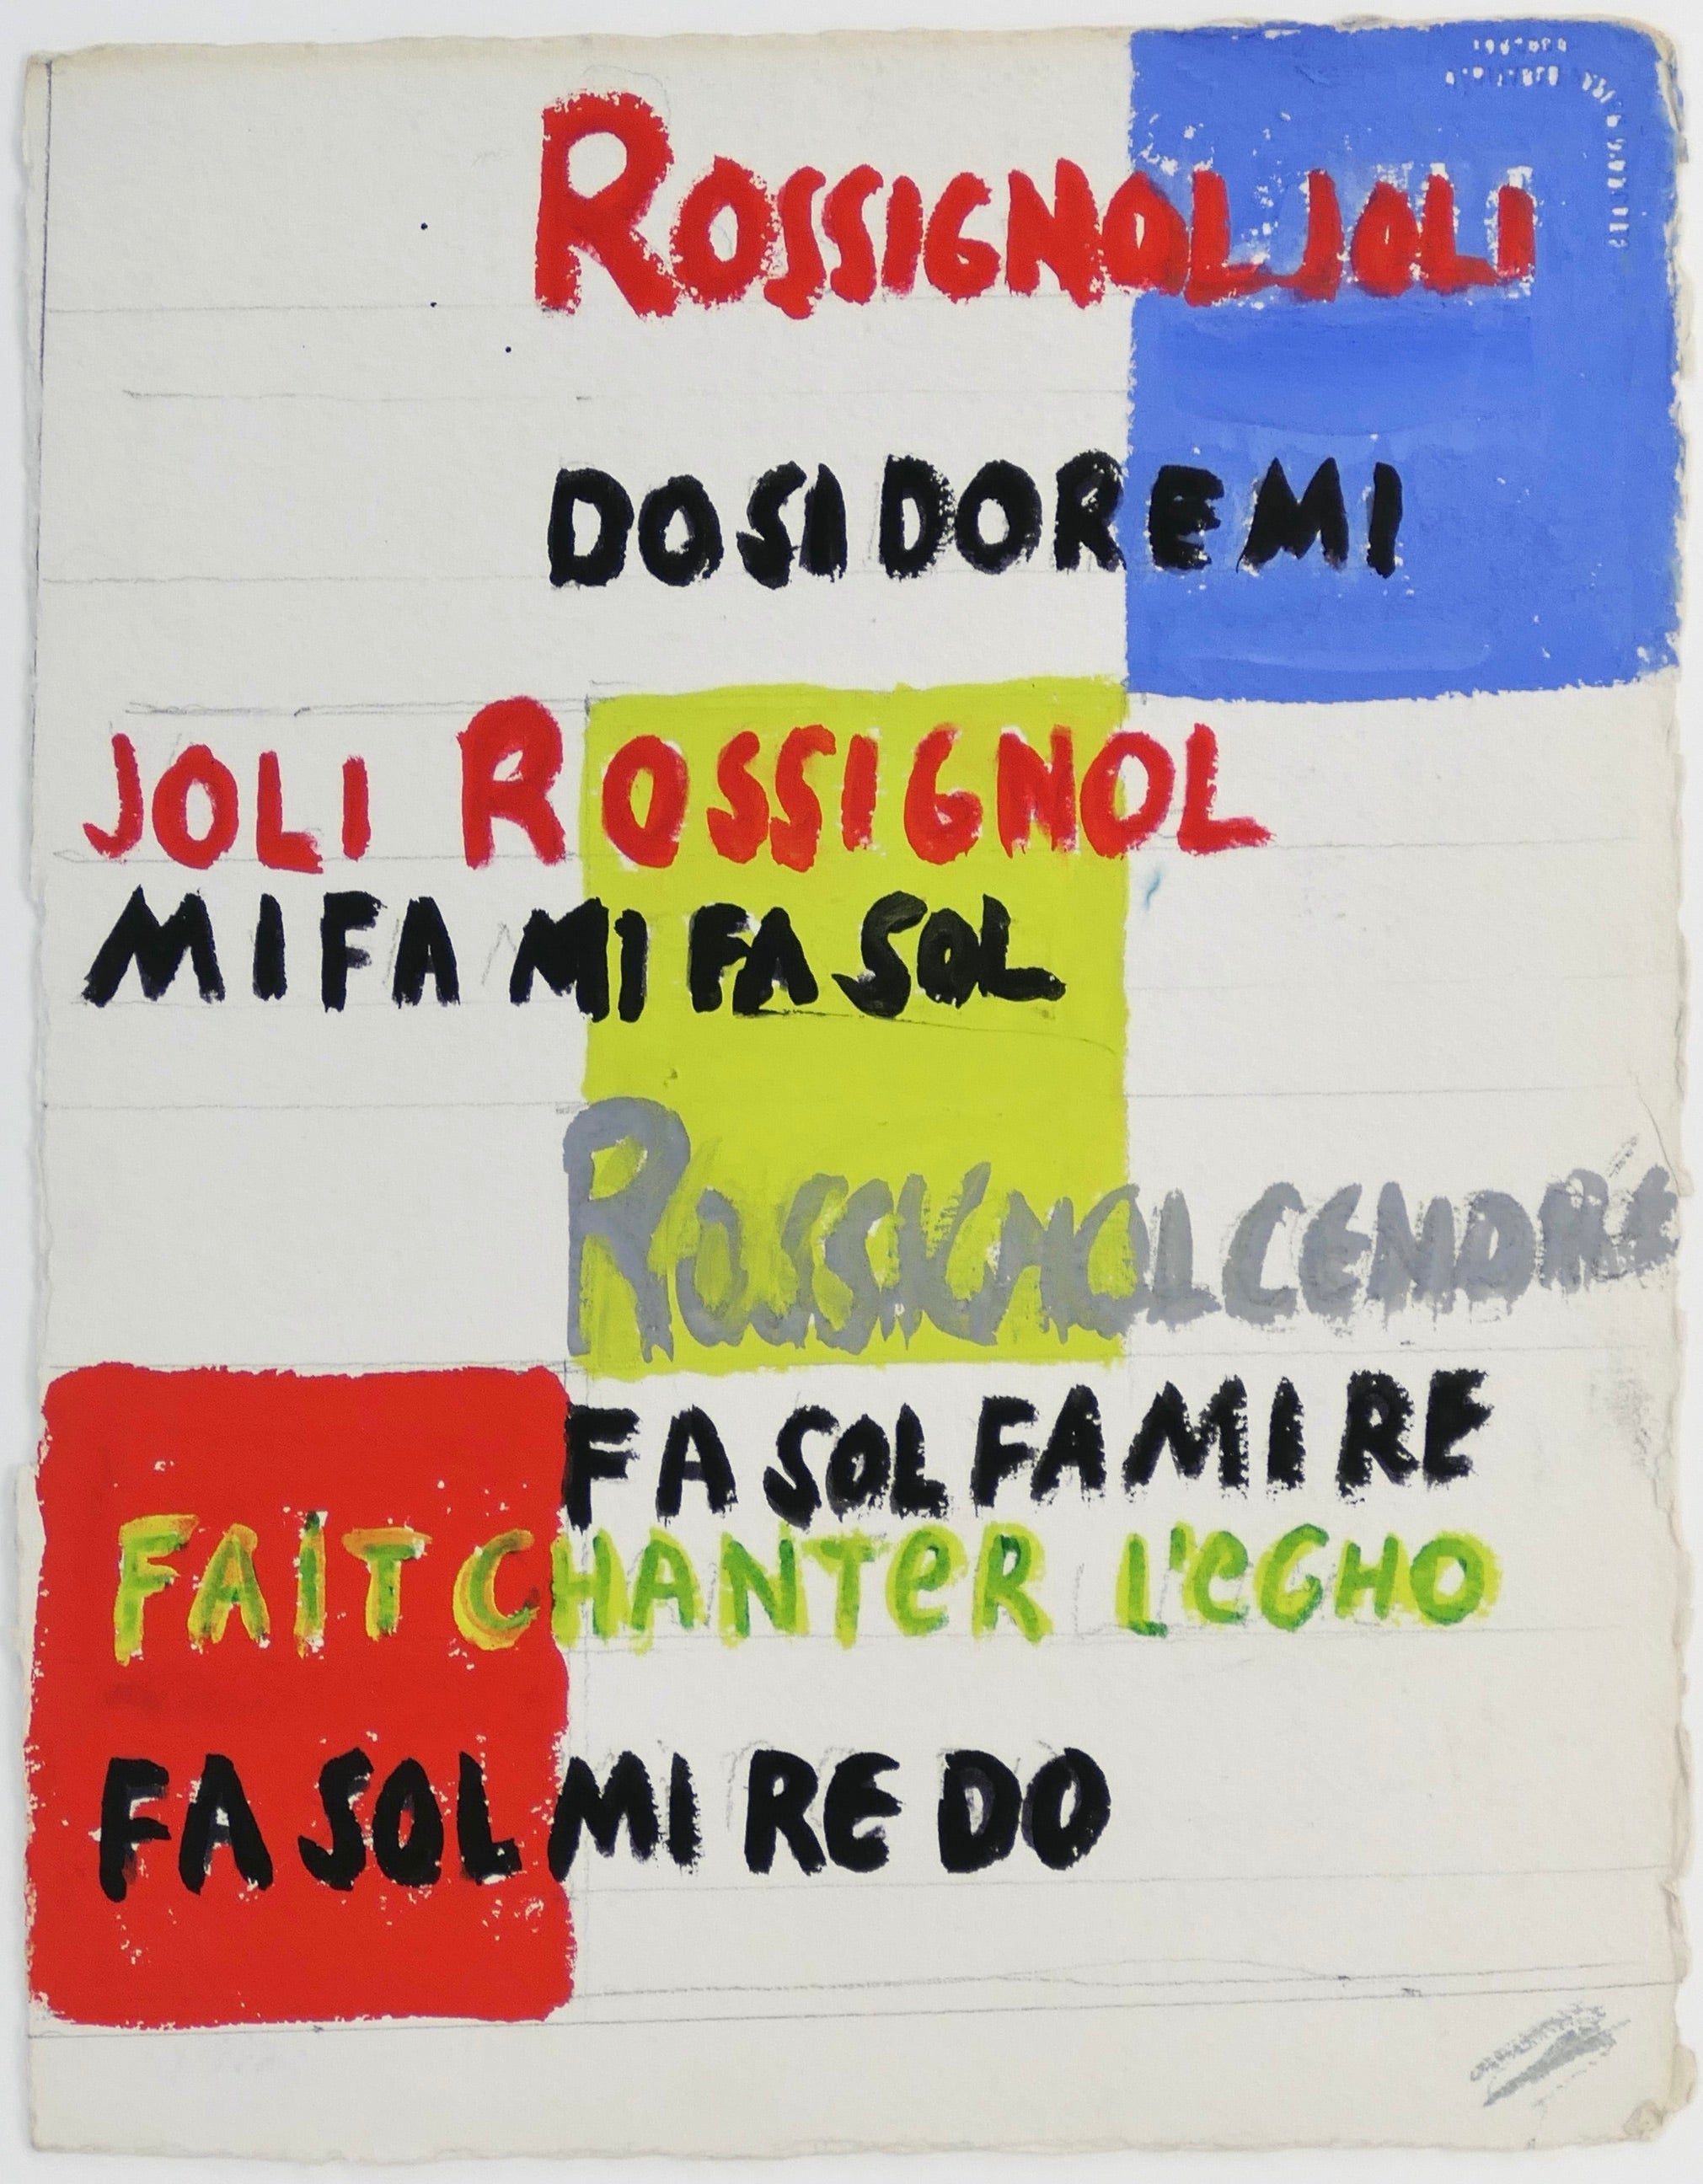 ROSSIGNOL JOLI
DO SI DO RE MI
JOLI ROSSIGNOL
MI FA MI FA SOL
ROSSIGNOL CENDRÉ
FA SOL FA MI RE
FAIT CHANTER L'eCHO
FA SOL MI RE DO